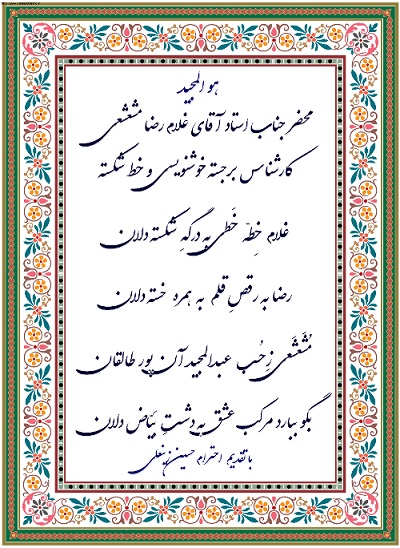 هو المجید
محضر جناب استاد آقای غلام رضا مشعشعی
کارشناس برجسته خوشنویسی و خط شکسته
غلامِ خِطهٔ خَطی به درگهِ شکسته دلان
رضا به رقصِ قلم به همره خسته دلان
مُشَعشَعی زِ حُب عبدالمجید آن پور طالقان
بگو ببارد مرکب عشق به دشتِ بیاض دلان
با تقدیم احترام حسین